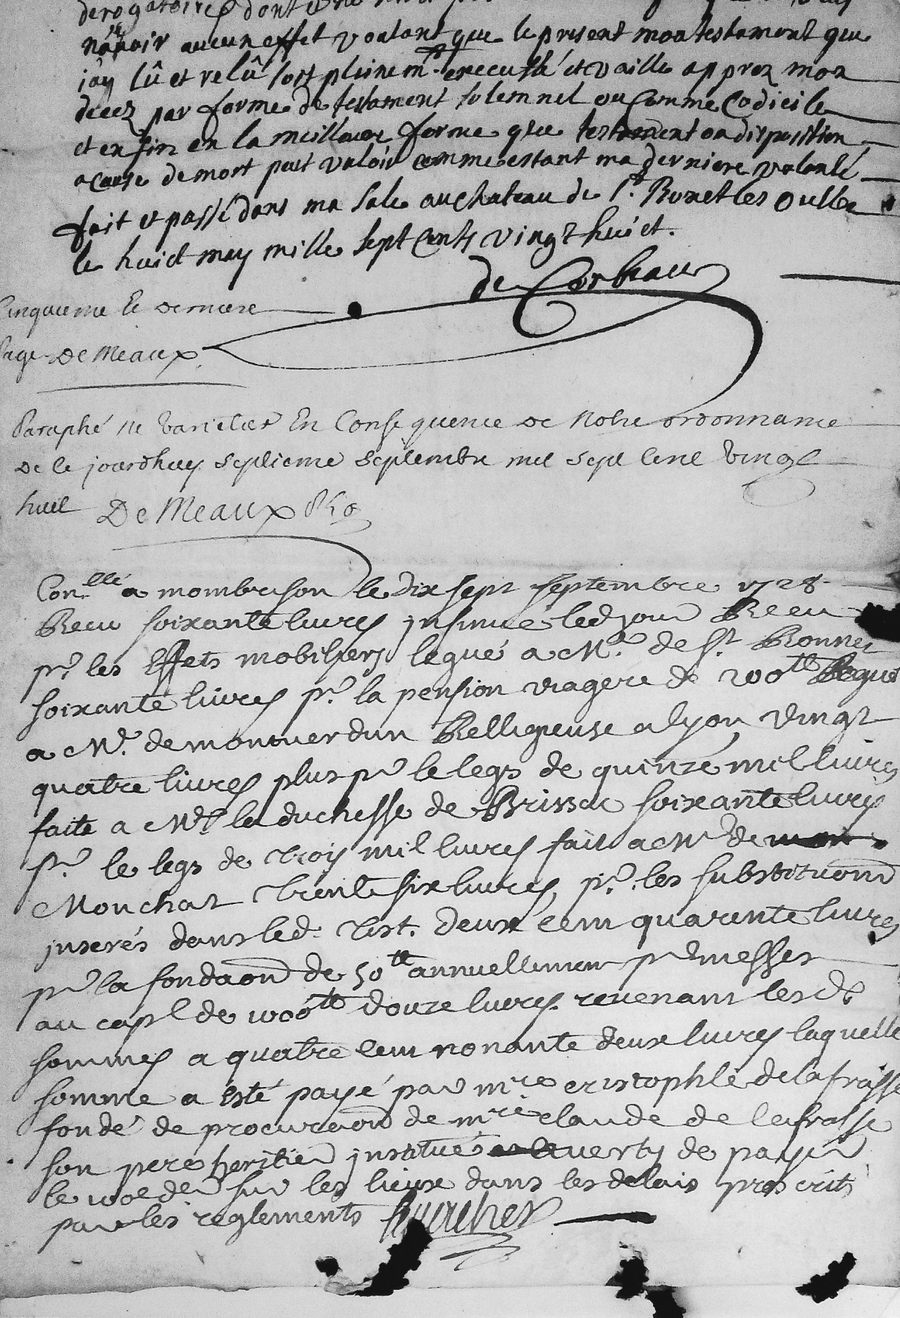 derogatoires dont
n'avoir aucun effet voulant que le present mon testament que
j'ay lû et relû sort pleinem.t executé et vaille apprez mon
decez par forme de testament solemnel ou Comme Codicile
et enfin en la meilleure forme que testament ou disposition
a cause de mort peut valoir comme estant ma derniere volonté
fait et passé dans ma Sale au Chateau de S.t Bonet les Oulles
le huict may mille sept Cents vingt huict.
de Corbeau
Cinquieme Et Derniere
Page De Meaux
Paraphé Ne Varietur En Consequence De Notre ordonnance
De ce jourdhuy Septieme Septembre mil Sept Cent Vingt
huit De Meaux
Con.llé a mombrison le dix sept septembre 1728
Receu soixante livres insinué led jour Receu
p.r les Effets mobiliers legué a M.e de S.t Bonnet
soixante livres p.r la pension viagere de 200.tt legué
a M.e de montverdun Relligieuse a lyon vingt
quatre livres plus p.r le legs de quinze mil livres
faite a Md.e la duchesse de Brissac soixante livres
p.r le legs de trois mil livres fait a M.r de
Monchat trente six livres p.r les substitu͠ons
inserés dans led. test. deux cent quarente livres
p.r la fonda͠on de 50.tt annuellemen p.r messes
au cap.l de 1000.tt douze livres revenant lesd.
sommes a quatre cent nonante deux livres laquelle
somme a esté payé par m.re cristophle delafraisse
fondé de procura͠on de m.re claude de lafrasse
son pere heritier institué averty de payer
le 100e den.r sur les lieux dans les delais proscrits
par les reglements